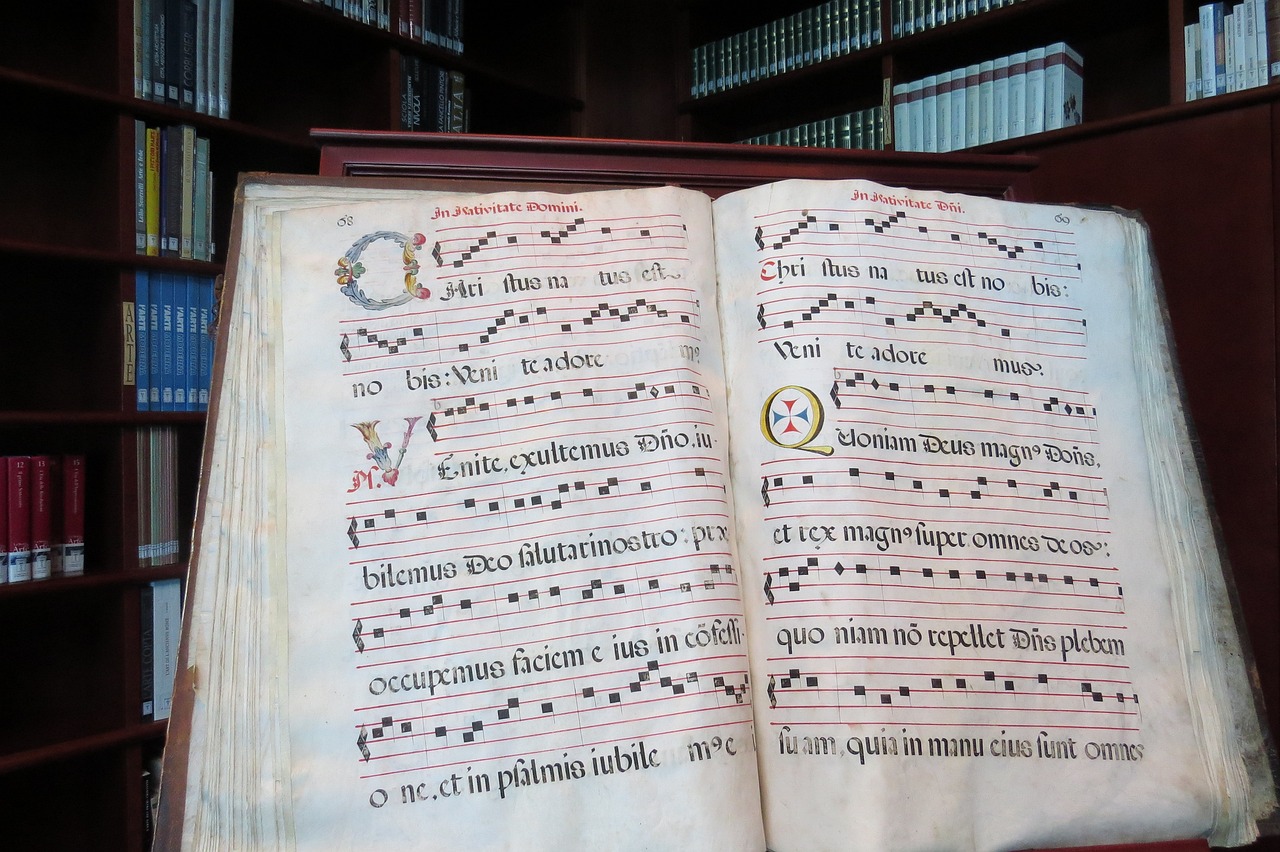 68
In Nativitate Domini.
CHri stus na tus est
no bis: Veni te adore m9
Ps. VEnite, exultemus Dño, iu-
bilemus Deo salutarinostro: præ
occupemus faciem e ius in cõfessi-
o ne, et in psalmis iubile m9 e
69
In Nativitate Dñi.
Chri stus na tus est no bis:
Veni te adore mus.
QUoniam Deus magn9 Doñs,
et rex magn9 super omnes deos:
quo niam nõ repellet Dñs plebem
suam, quia in manu eius sunt omnes
ARTE
L'ARTE
L'ARTE
L'ARTE
L'ARTE
L'ARTE
12
13